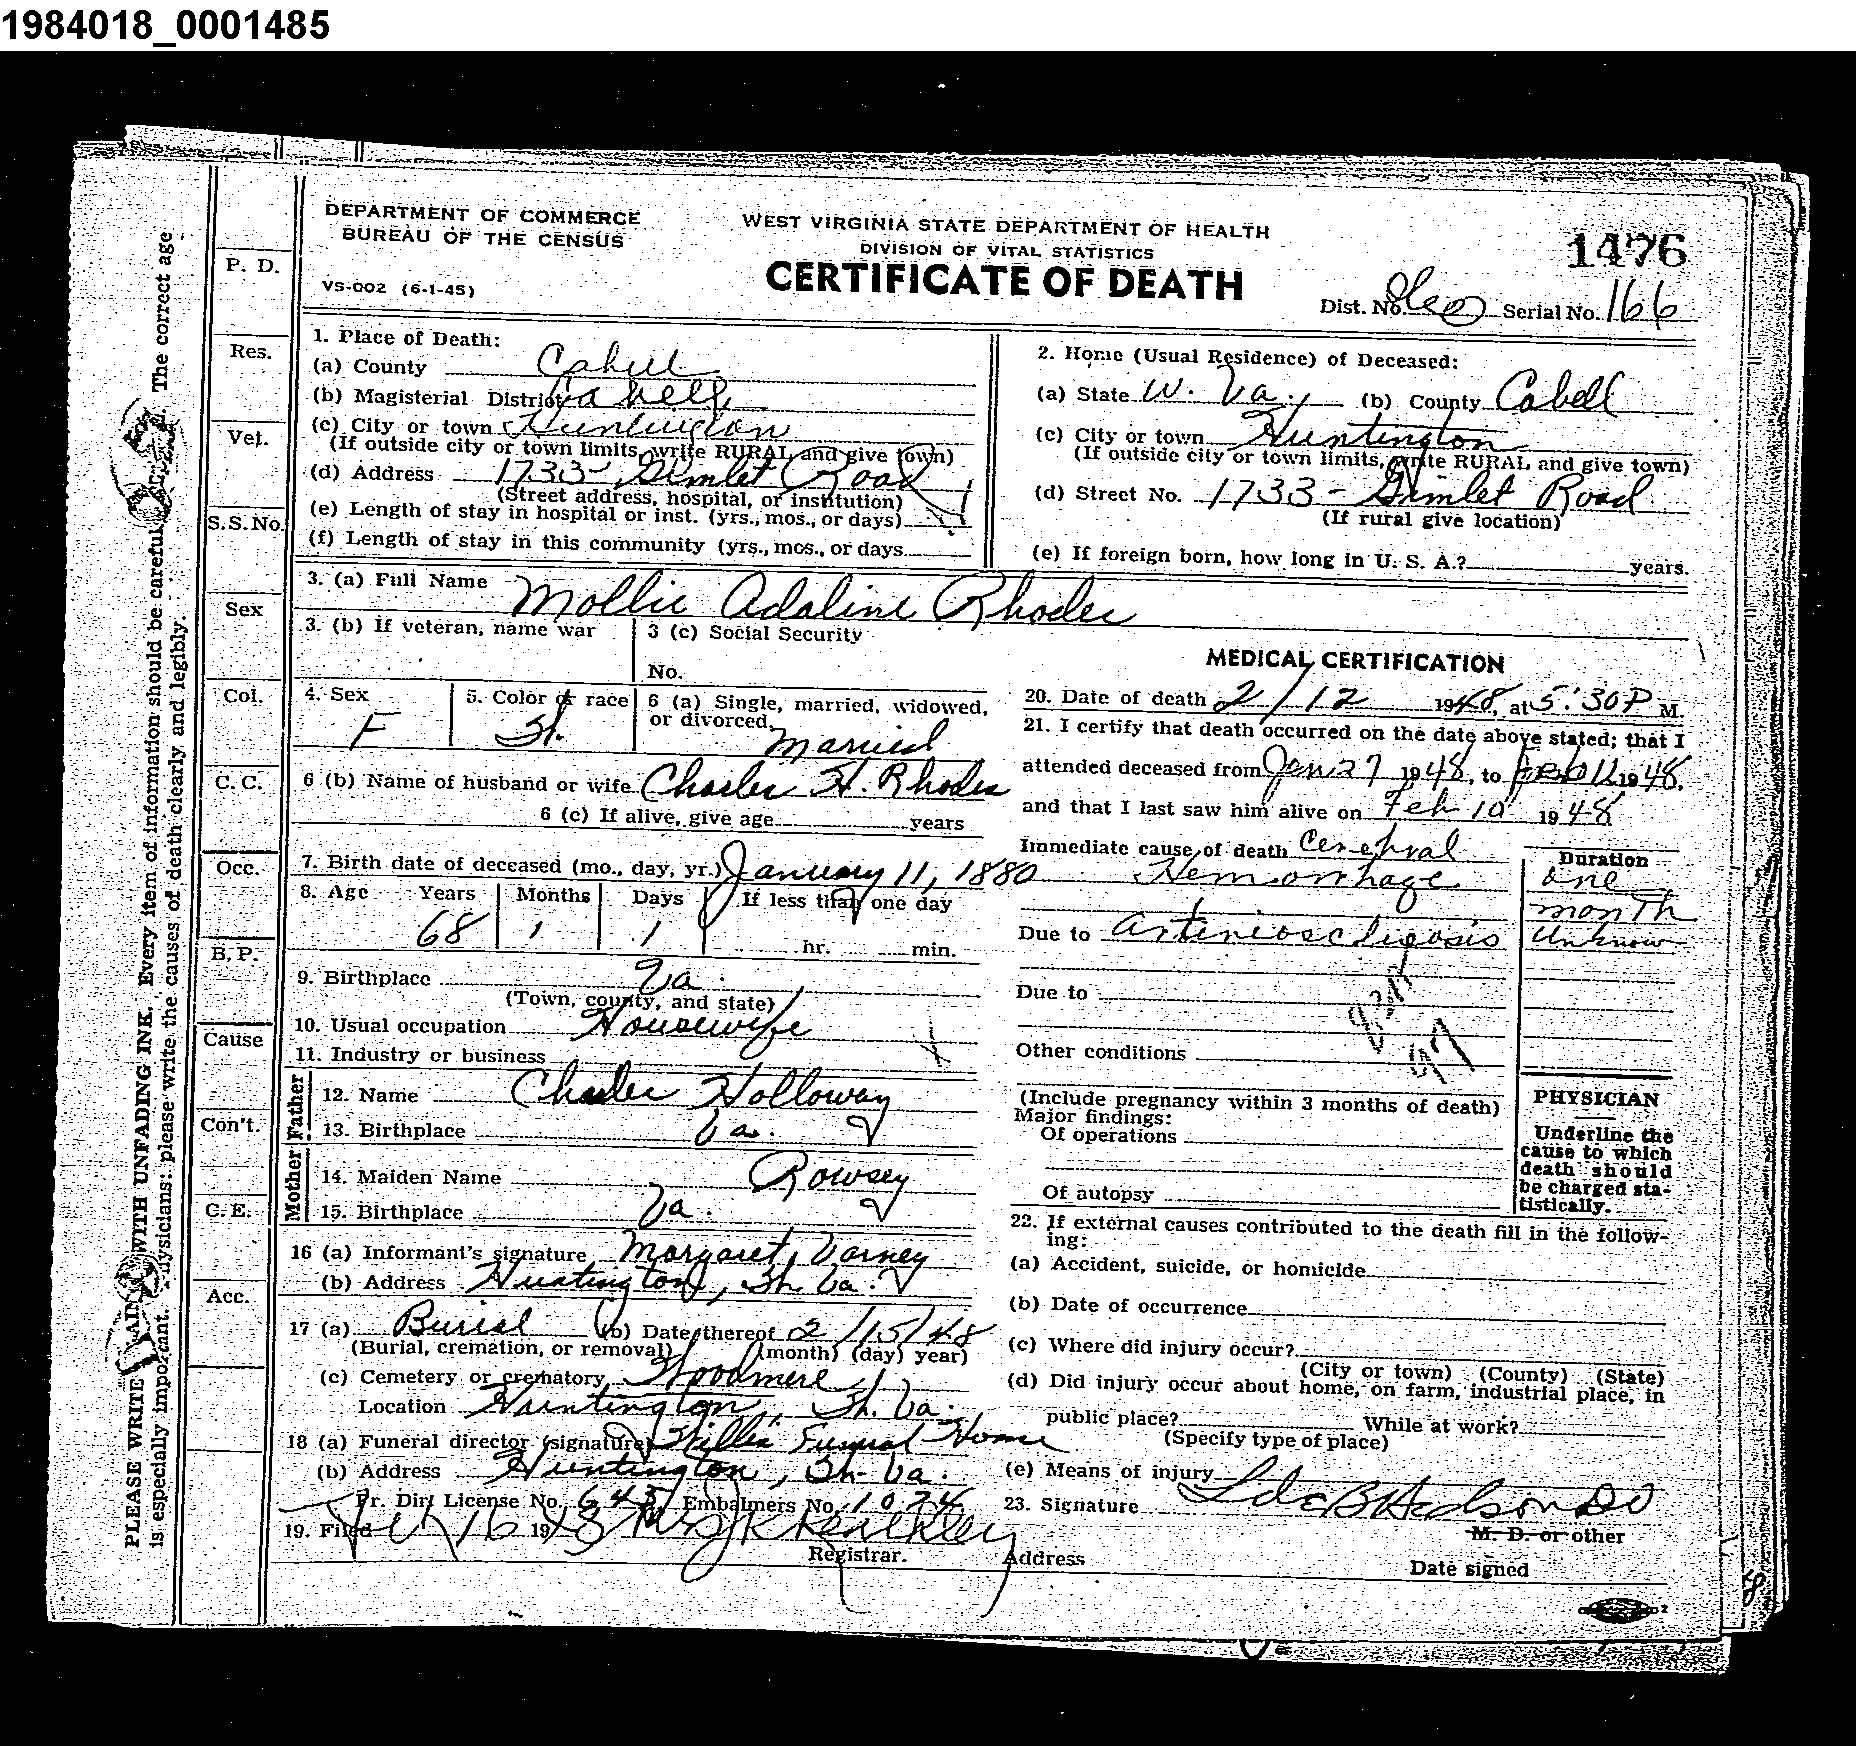 1984018_0001485
DEPARTMENT OF COMMERCE
BUREAU OF THE CENSUS
VS-002 (6-1-45)
WEST VIRGINIA STATE DEPARTMENT OF HEALTH
DIVISION OF VITAL STATISTICS
CERTIFICATE OF DEATH
1476
Dist. No. Serial No. 166
PLEASE WRITE PLAINLY WITH UNFADING INK. Every item of information should be carefully The correct age
is especially important. Physicians: please write the causes of death clearly and legibly.
P. D.
Res.
Vet.
S.S. No.
Sex
Col.
C. C.
Occ.
B. P.
Cause
Con't.
C. E.
Acc.
1. Place of Death:
(a) County Cabell
(b) Magisterial District Cabell
(c) City or town Huntington
(If outside city or town limits, write RURAL and give town)
(d) Address 1733 - Gimlet Road
(Street address, hospital, or institution)
(e) Length of stay in hospital or inst. (yrs., mos., or days)
(f) Length of stay in this community (yrs., mos., or days
2. Home (Usual Residence) of Deceased:
(a) State W. Va. (b) County Cabell
(c) City or town Huntington
(If outside city or town limits, write RURAL and give town)
(d) Street No. 1733 - Gimlet Road
(If rural give location)
(e) If foreign born, how long in U. S. A.? years.
3. (a) Full Name Mollie Adaline Rhodes
3. (b) If veteran, name war
3 (c) Social Security
No.
4. Sex F
5. Color or race W.
6 (a) Single, married, widowed,
or divorced. Married
6 (b) Name of husband or wife Charles H. Rhodes
6 (c) If alive, give age years
7. Birth date of deceased (mo., day, yr.) January 11, 1880
8. Age Years Months Days If less than one day
68 1 1 hr. min.
9. Birthplace Va.
(Town, county, and state)
10. Usual occupation Housewife
11. Industry or business
Father
12. Name Charles Holloway
13. Birthplace Va.
Mother
14. Maiden Name Rowsey
15. Birthplace Va.
16 (a) Informant's signature Margaret Varney
(b) Address Huntington, W. Va.
17 (a) Burial (b) Date thereof 2/15/48
(Burial, cremation, or removal) (month) (day) year)
(c) Cemetery or crematory Woodmere
Location Huntington, W. Va.
18 (a) Funeral director (signature) Willis Funeral Home
(b) Address Huntington, W. Va.
Fr. Dir. License No. 645 Embalmers No. 1024
19. Filed 16 1948
Registrar.
MEDICAL CERTIFICATION
20. Date of death 2/12 1948, at 5:30 P M.
21. I certify that death occurred on the date above stated; that I
attended deceased from Jan 27 1948, to Feb 11 1948,
and that I last saw him alive on Feb 10 1948
Immediate cause of death Cerebral
Hemorrhage
Duration
one
month
Due to Arteriosclerosis Unknow
Due to
97
Other conditions
(Include pregnancy within 3 months of death)
Major findings:
Of operations
Of autopsy
PHYSICIAN
Underline the
cause to which
death should
be charged sta-
tistically.
22. If external causes contributed to the death fill in the follow-
ing:
(a) Accident, suicide, or homicide
(b) Date of occurrence
(c) Where did injury occur?
(City or town) (County) (State)
(d) Did injury occur about home, on farm, industrial place, in
public place? While at work?
(Specify type of place)
(e) Means of injury
23. Signature B Hudson DO
M. D. or other
Address
Date signed